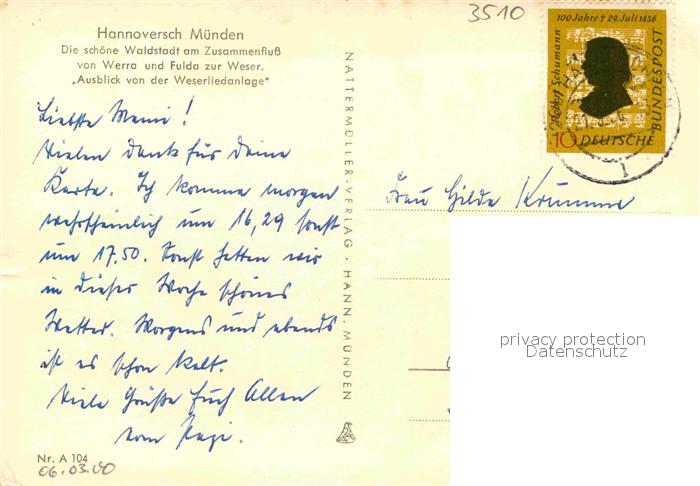 3510
Hannoversch Münden
Die schöne Waldstadt am Zusammenfluß
von Werra und Fulda zur Weser.
„Ausblick von der Weserliedanlage"
100 Jahre † 29. Juli 1856
Robert Schumann
10 DEUTSCHE
BUNDESPOST
Liebste Memi!
Vielen Dank für Deine
Karte. Ich komme morgen
wahrscheinlich um 16,29 sonst
um 17.50. Sonst hatten wir
in dieser Woche schönes
Wetter. Morgens und abends
ist es schon kalt.
Viele Grüße Euch Allen
vom
NATTERMÜLLER-VERLAG · HANN. MÜNDEN
Frau Gilda Krumme
privacy protection
Datenschutz
Nr. A 104
06.03.00